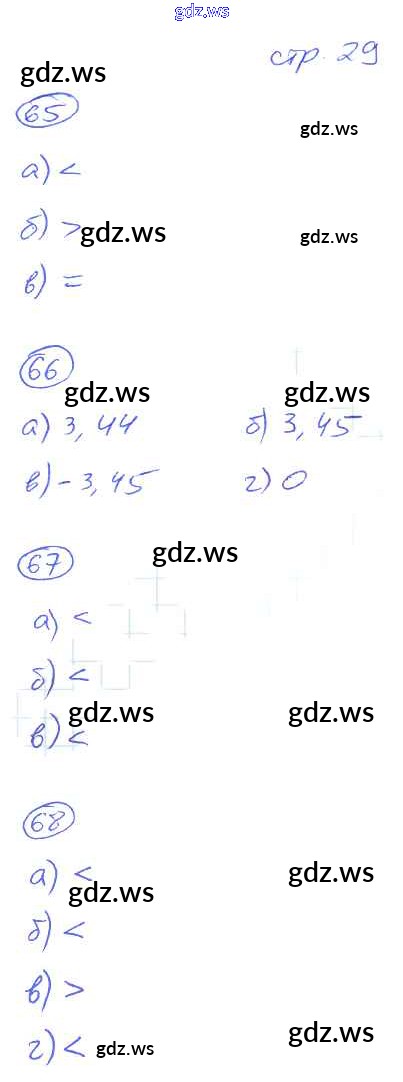 gdz.ws
стр. 29
gdz.ws
65
gdz.ws
а) <
б) > gdz.ws
gdz.ws
в) =
66
gdz.ws gdz.ws
а) 3,44 б) 3,45
в) -3,45 г) 0
67
gdz.ws
а) <
б) <
gdz.ws gdz.ws
в) <
68
а) < gdz.ws
gdz.ws
б) <
в) >
г) < gdz.ws gdz.ws